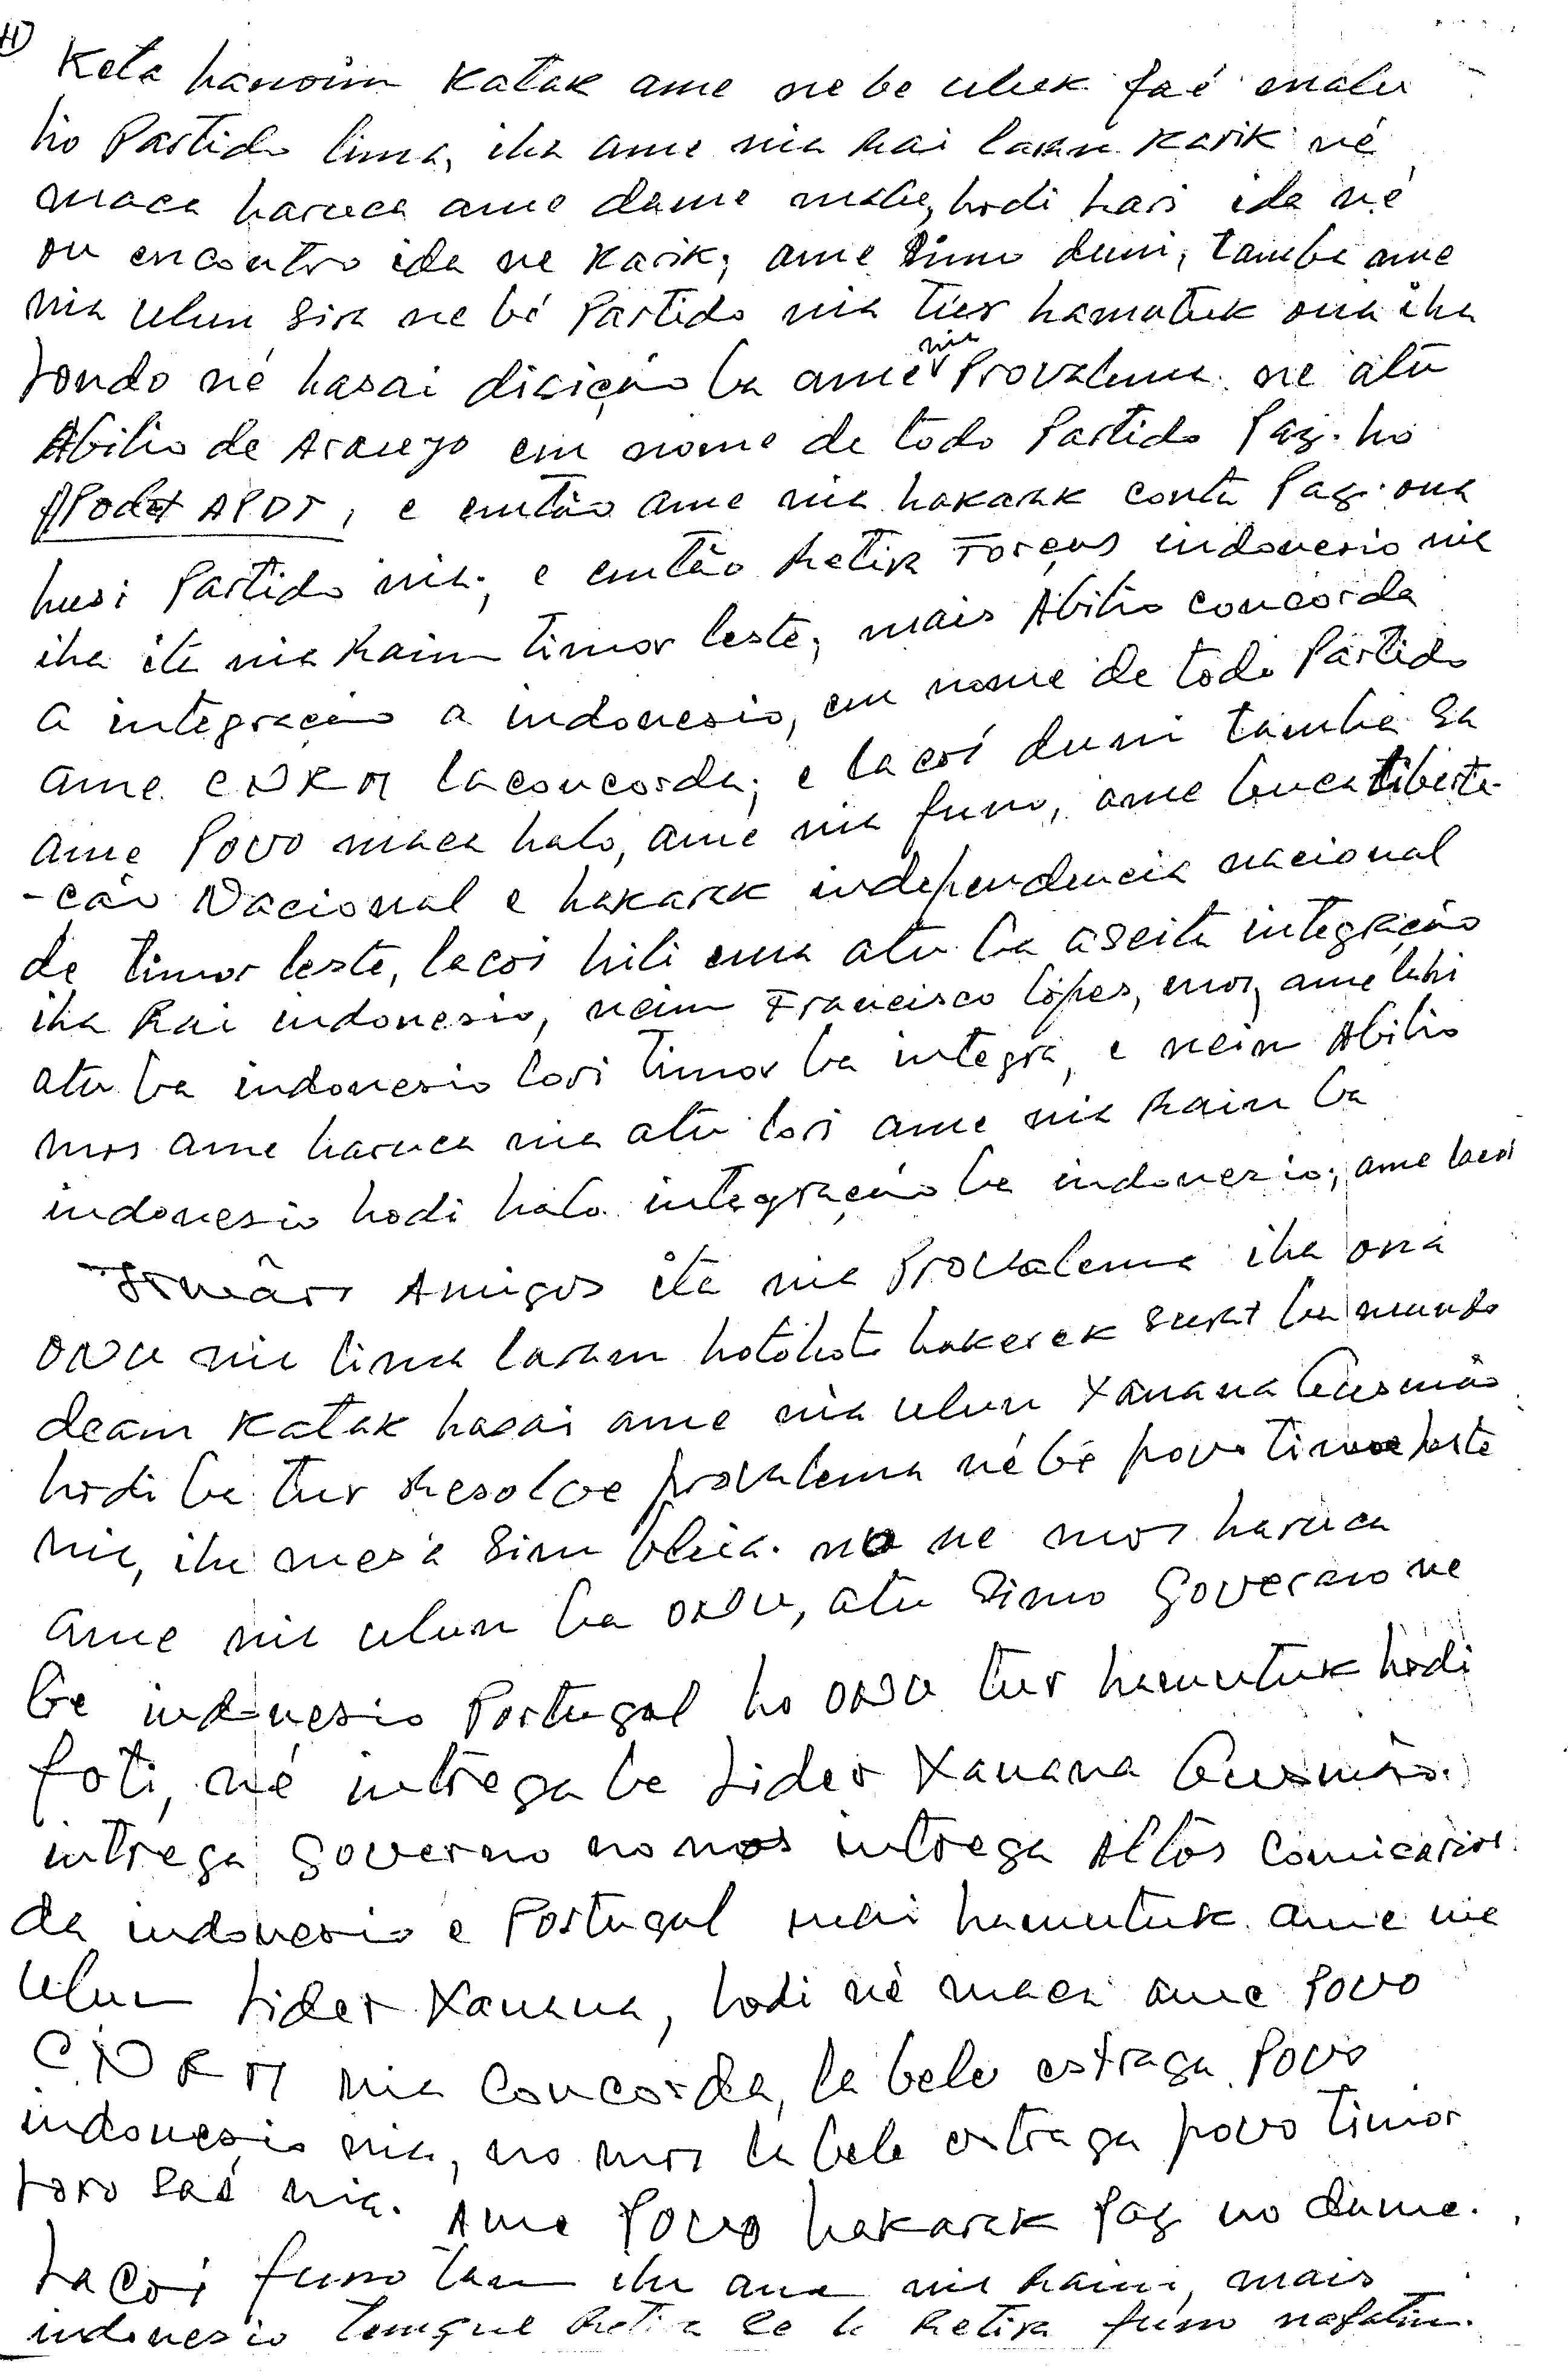 Keta hanoin Katak ame ne be uluk faé malu
ho Partido lima, iha ame nia rai laran Karik né
maca haruca ame dame malu, hodi hari ida né
ou encontro ida ne Karik; ame simo duni, tamba ame
nia ulun sira ne bé Partido nia tur hamutuk ona iha
Londo né hasai disição ba ame nia Provalema ne atu
Abilio de Araujo em nome de todo Partido Paz. ho
Apodet APDT, e então ame nia hakarak conta Paz ona
husi Partido nia; e então Retira Forças indonesio nia
iha ita nia Rain timor leste; mais Abilio concorda
a integração a indonesio, em nome de todo Partido
ame CNRM laconcorda; e lacoi duni tamba sa
ame Povo maca halo, ame nia funo, ame buca liberta-
-cão Nacional e hakarak independencia nacional
de timor leste, lacoi hili ema atu ba aseita integração
iha Rai indonesio, nein Francisco Lópes, mos, ame hili
atu ba indonesio lori timor ba integra, e nein Abilio
mos ame haruca nia atu lori ame nia Rain ba
indonesio hodi halo integração ba indonesio; ame lacoi
Irmãos Amigos ita nia Provalema iha ona
ONU nia lima laram hotohoto hakerek surat ba mundo
deam Katak hasai ame nia ulun Xanana Gusmão
hodi ba tur Resolve provalema nébé povo timor leste
nia, iha mesa sim blia. no ne mos haruca
ame nia ulun ba ONU, atu Simo Governo ne
be indonesio Portugal ho ONU tur hamutuk hodi
foti, né intrega be Lider Xanana Gusmão.
intrega governo no mos intrega Altos Comicarios
da indonesio e Portugal mai hamutuk ame nia
ulun Lider Xanana, hodi né maca ame Povo
CNRM nia Concorda, la bele estraga Povo
indonesio nia, no mos la bele estraga povo timor
Loro saé nia. Ame Povo hakarak Paz no dame.
Lacoi funo tan iha ana nia Raini, mais
indonesio tenque Retira se la Retira funo nafatin.